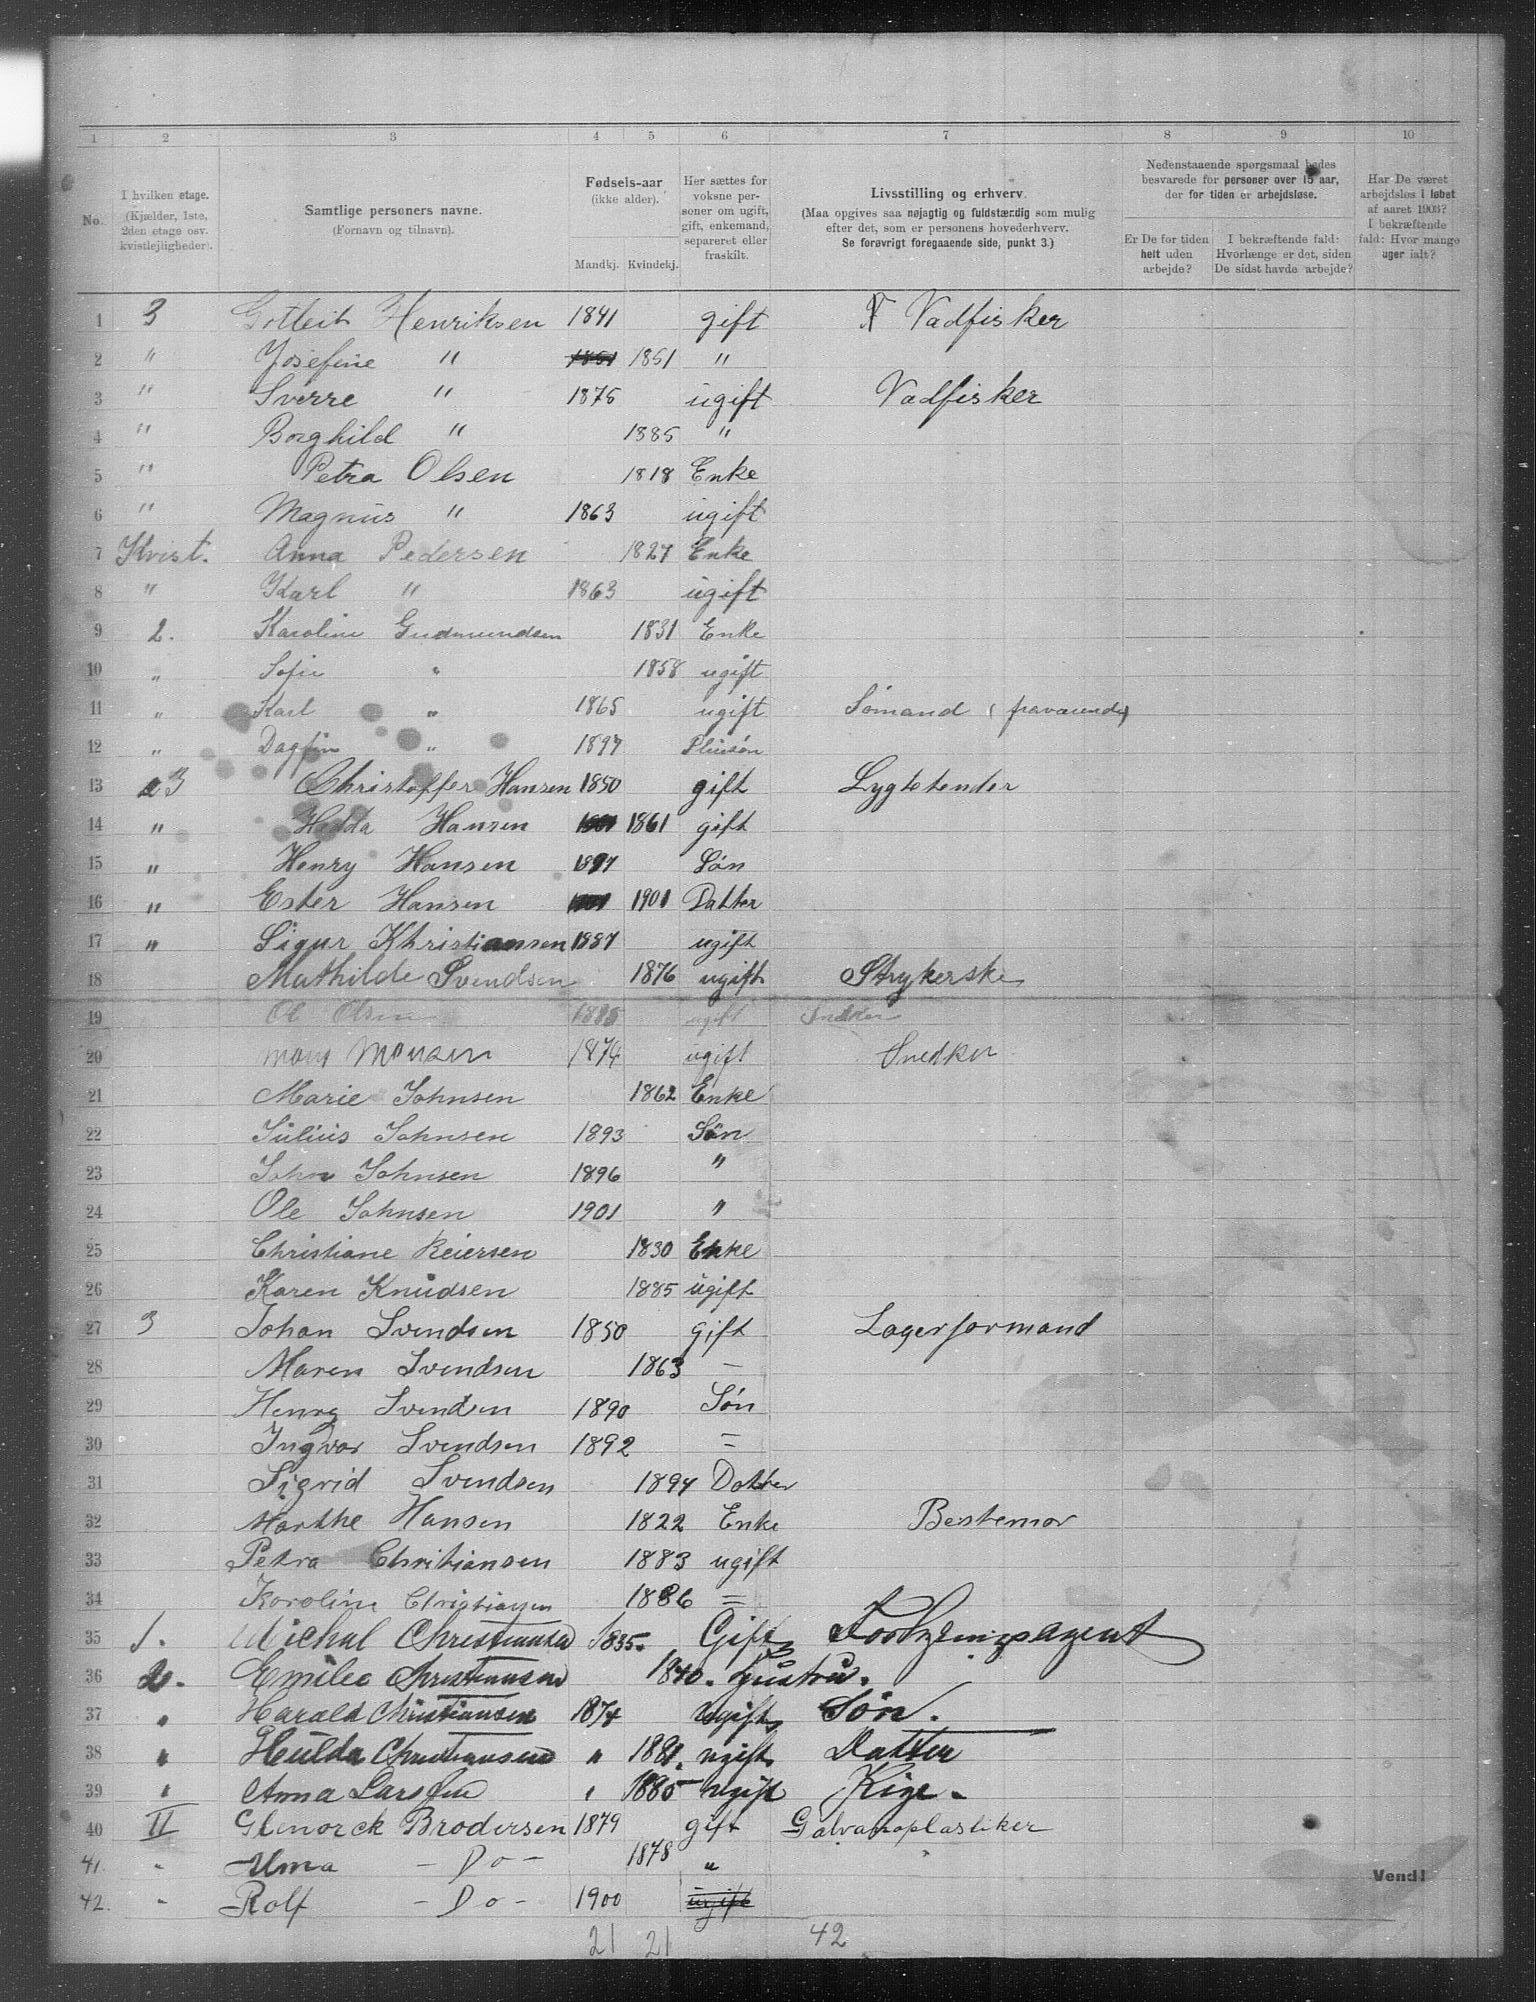 1 2 3 4 5 6 7 8 9 10
No.
I hvilken etage. (Kjælder, 1ste, 2den etage osv. kvistlejligheder).
Samtlige personers navne. (Fornavn og tilnavn).
Fødsels-aar (ikke alder).
Mandkj. Kvindekj.
Her sættes for voksne personer om ugift, gift, enkemand, separeret eller fraskilt.
Livsstilling og erhverv. (Maa opgives saa nøjagtig og fuldstændig som mulig efter det, som er personens hovederhverv. Se forøvrigt foregaaende side, punkt 3.)
Nedenstaaende spørgsmaal bedes besvarede for personer over 15 aar, der for tiden er arbejdsløse.
Er De for tiden helt uden arbejde?
I bekræftende fald: Hvorlænge er det, siden De sidst havde arbejde?
Har De været arbejdsløs i løbet af aaret 1903? I bekræftende fald: Hvor mange uger ialt?
1 3 Gotleib Henriksen 1841 gift Vadfisker
2 " Josefine " 1851 1851 "
3 " Sverre " 1875 ugift Vadfisker
4 " Borghild " 1885 "
5 " Petra Olsen 1818 Enke
6 " Magnus " 1863 ugift
7 Kvist. Anna Pedersen 1827 Enke
8 " Karl " 1863 ugift
9 2. Karoline Gudmundsen 1831 Enke
10 " Sofie " 1858 ugift
11 " Karl " 1865 ugift Sømand (fraværende)
12 " Dagfin " 1897 Pleiesøn
13 3 Christoffer Hansen 1850 gift Lygtetender
14 " Hedda Hansen 1861 gift
15 " Henry Hansen 1897 Søn
16 " Ester Hansen 1901 Datter
17 " Sigur Khristiansen 1887 ugift
18 Mathilde Svendsen 1876 ugift Strykerske
19 Ol Olsen 1885 ugift Snekker
20 Mons Monsen 1874 ugift Snedker
21 Marie Johnsen 1862 Enke
22 Julius Johnsen 1893 Søn
23 John Johnsen 1896 "
24 Ole Johnsen 1901 "
25 Christiane Reiersen 1830 Enke
26 Karen Knudsen 1885 ugift
27 3 Johan Svendsen 1850 gift Lagerformand
28 Maren Svendsen 1863 –
29 Henry Svendsen 1890 Søn
30 Ingvar Svendsen 1892 =
31 Sigrid Svendsen 1894 Datter
32 Marthe Hansen 1822 Enke Bestemor
33 Petra Christiansen 1883 ugift
34 Karoline Christiansen 1886 =
35 1. Michal Christiansen 1835. Gift
36 2. Emilie Christiansen 1840. Hustru.
37 " Harald Christiansen 1874 Ugift, Søn.
38 " Hulda Christiansen " 1881. ugift. Datter
39 " Anna Larssen " 1885 ugift Pige.
40 II Glenorck Brodersen 1879 gift Galvanoplastiker
41. " Alma – Do – 1878 "
42. " Rolf – Do – 1900 ugift
Vend!
21 21 42